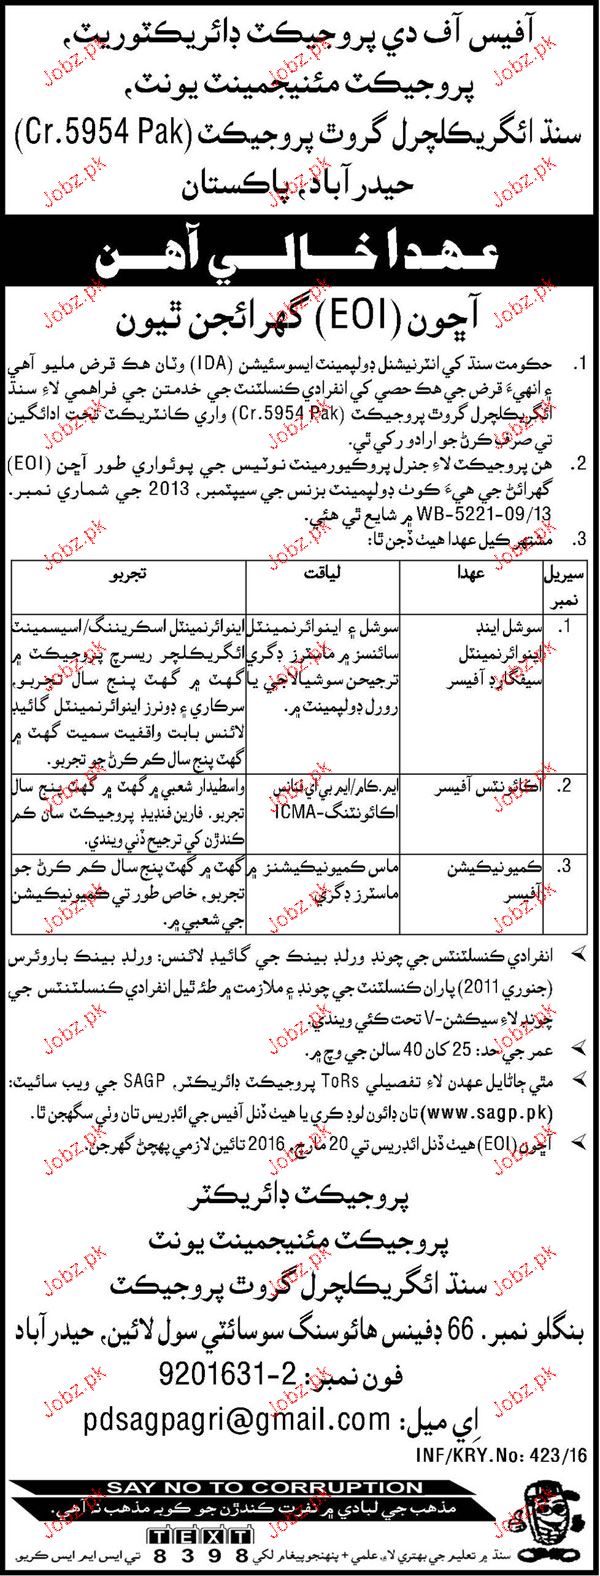 آفيس آف دي پروجيڪٽ ڊائريڪٽوريٽ،
پروجيڪٽ مئنيجمينٽ يونٽ،
سنڌ ائگريڪلچرل گروٿ پروجيڪٽ (Cr.5954 Pak)
حيدرآباد، پاڪستان
عهدا خالي آهن
آڇون (EOI) گهرائجن ٿيون
1. حڪومت سنڌ کي انٽرنيشنل ڊولپمينٽ ايسوسئيشن (IDA) وٽان هڪ قرض مليو آهي
۽ انهيءَ قرض جي هڪ حصي کي انفرادي ڪنسلٽنٽ جي خدمتن جي فراهمي لاءِ سنڌ
ائگريڪلچرل گروٿ پروجيڪٽ (Cr.5954 Pak) واري ڪانٽريڪٽ تحت ادائگين
تي صرف ڪرڻ جو ارادو رکي ٿي.
2. هن پروجيڪٽ لاءِ جنرل پروڪيورمينٽ نوٽيس جي پوئواري طور آڇن (EOI)
گهرائڻ جي هيءَ ڪوٺ ڊولپمينٽ بزنس جي سيپٽمبر، 2013 جي شماري نمبر.
WB-5221-09/13 ۾ شايع ٿي هئي.
3. مشتهر ڪيل عهدا هيٺ ڏجن ٿا:
سيريل نمبر | عهدا | لياقت | تجربو
1. سوشل اينڊ | سوشل ۽ اينوائرنمينٽل | اينوائرنمينٽل اسڪريننگ/اسيسمينٽ
اينوائرنمينٽل | سائنسز ۾ ماسٽرز ڊگري | ائگريڪلچر ريسرچ پروجيڪٽ ۾
سيفگارڊ آفيسر | ترجيحن سوشيالاجي يا | گهٽ ۾ گهٽ پنج سال تجربو،
رورل ڊولپمينٽ ۾. | سرڪاري ۽ ڊونرز اينوائرنمينٽل گائيڊ
لائنس بابت واقفيت سميت گهٽ ۾
گهٽ پنج سال ڪم ڪرڻ جو تجربو.
2. اڪائونٽس آفيسر | ايم.ڪام/ايم بي اي فنانس | واسطيدار شعبي ۾ گهٽ ۾ گهٽ پنج سال
اڪائونٽنگ-ICMA | تجربو. فارين فنڊيڊ پروجيڪٽ سان ڪم
ڪندڙن کي ترجيح ڏني ويندي.
3. ڪميونيڪيشن | ماس ڪميونيڪيشنز ۾ | گهٽ ۾ گهٽ پنج سال ڪم ڪرڻ جو
آفيسر | ماسٽرز ڊگري | تجربو، خاص طور تي ڪميونيڪيشن
جي شعبي ۾.
انفرادي ڪنسلٽنٽس جي چونڊ ورلڊ بينڪ جي گائيڊ لائنس: ورلڊ بينڪ باروئرس
(جنوري 2011) پاران ڪنسلٽنٽ جي چونڊ ۽ ملازمت ۾ طئه ٿيل انفرادي ڪنسلٽنٽس جي
چونڊ لاءِ سيڪشن-V تحت ڪئي ويندي.
عمر جي حد: 25 کان 40 سالن جي وچ ۾.
مٿي ڄاڻايل عهدن لاءِ تفصيلي ToRs پروجيڪٽ ڊائريڪٽر، SAGP جي ويب سائيٽ:
(www.sagp.pk) تان ڊائون لوڊ ڪري يا هيٺ ڏنل آفيس جي ائڊريس تان وٺي سگهجن ٿا.
آڇون (EOI) هيٺ ڏنل ائڊريس تي 20 مارچ، 2016 تائين لازمي پهچڻ گهرجن.
پروجيڪٽ ڊائريڪٽر
پروجيڪٽ مئنيجمينٽ يونٽ
سنڌ ائگريڪلچرل گروٿ پروجيڪٽ
بنگلو نمبر. 66 ڊفينس هائوسنگ سوسائٽي سول لائين، حيدرآباد
فون نمبر: 2-9201631
اِي ميل: pdsagpagri@gmail.com
INF/KRY.No: 423/16
SAY NO TO CORRUPTION
مذهب جي لبادي ۾ نفرت ڪندڙن جو ڪوبه مذهب نه آهي.
TEXT
سنڌ ۾ تعليم جي بهتري لاءِ، علمي + پنهنجو پيغام لکي 8398 تي ايس ايم ايس ڪريو.
Jobz.pk